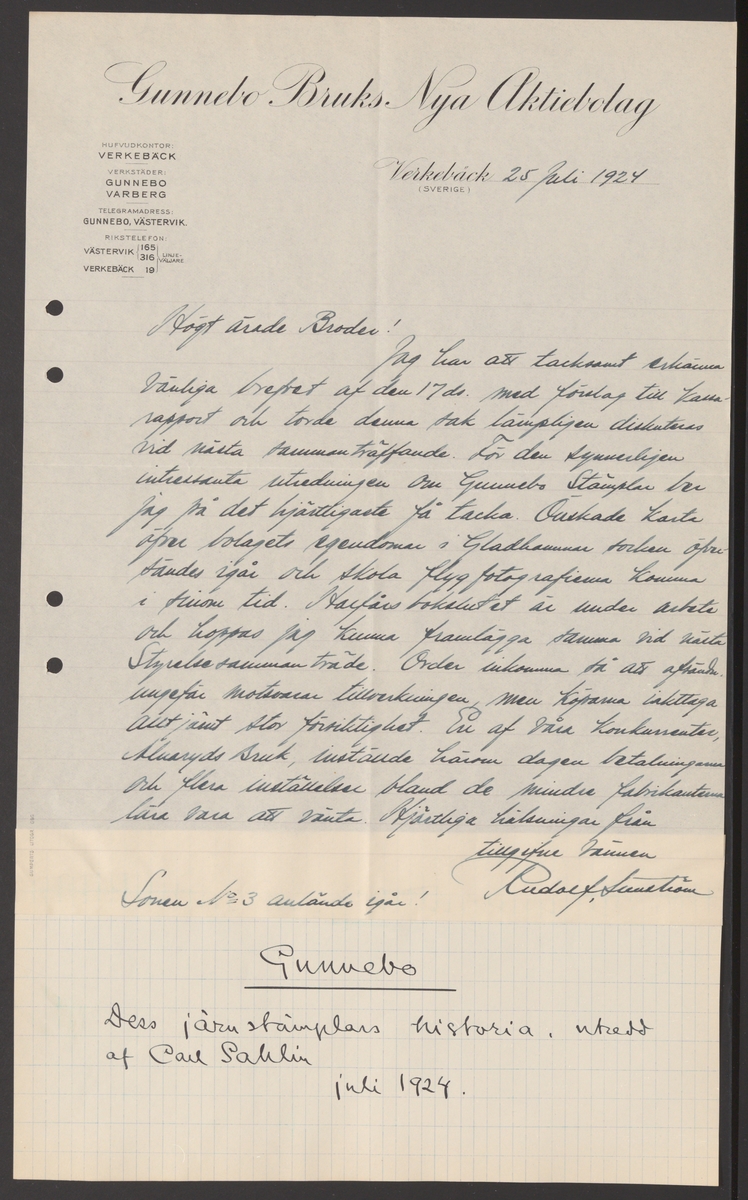 Gunnebo Bruks Nya Aktiebolag
HUFVUDKONTOR:
VERKEBÄCK
VERKSTÄDER:
GUNNEBO
VARBERG
TELEGRAMADRESS:
GUNNEBO, VÄSTERVIK.
RIKSTELEFON:
VÄSTERVIK 165 316 LINJE-VÄLJARE
VERKEBÄCK 19
Verkebäck 25 Juli 1924
(SVERIGE)
Högt ärade Broder!
Jag har att tacksamt erkänna
vänliga brefvet af den 17 ds. med förslag till Kassa-
rapport och torde denna sak lämpligen diskuteras
vid nästa sammanträffande. För den synnerligen
intressanta utredningen om Gunnebo Stämplar ber
jag på det hjärtligaste få tacka. Önskade Karta
öfver bolagets egendomar i Gladhammar socken öfver-
sändes igår och skola flygfotografierna komma
i sinom tid. Halfårsbokslutet är under arbete
och hoppas jag kunna framlägga samma vid nästa
Styrelsesammanträde. Order inkomma så att afsändn.
ungefär motsvarar tillverkningen, men köparna iakttaga
alltjämt stor försiktighet. En af våra Konkurrenter,
Alvaryds Bruk, inställde härom dagen betalningarna
och flera inställelser bland de mindre fabrikanterna
lära vara att vänta. Hjärtliga hälsningar från
tillgifne vännen
Rudolf
Sonen No 3 anlände igår!
Gunnebo
Dess järnstämplars historia, utredd
af Carl Sahlin
juli 1924.